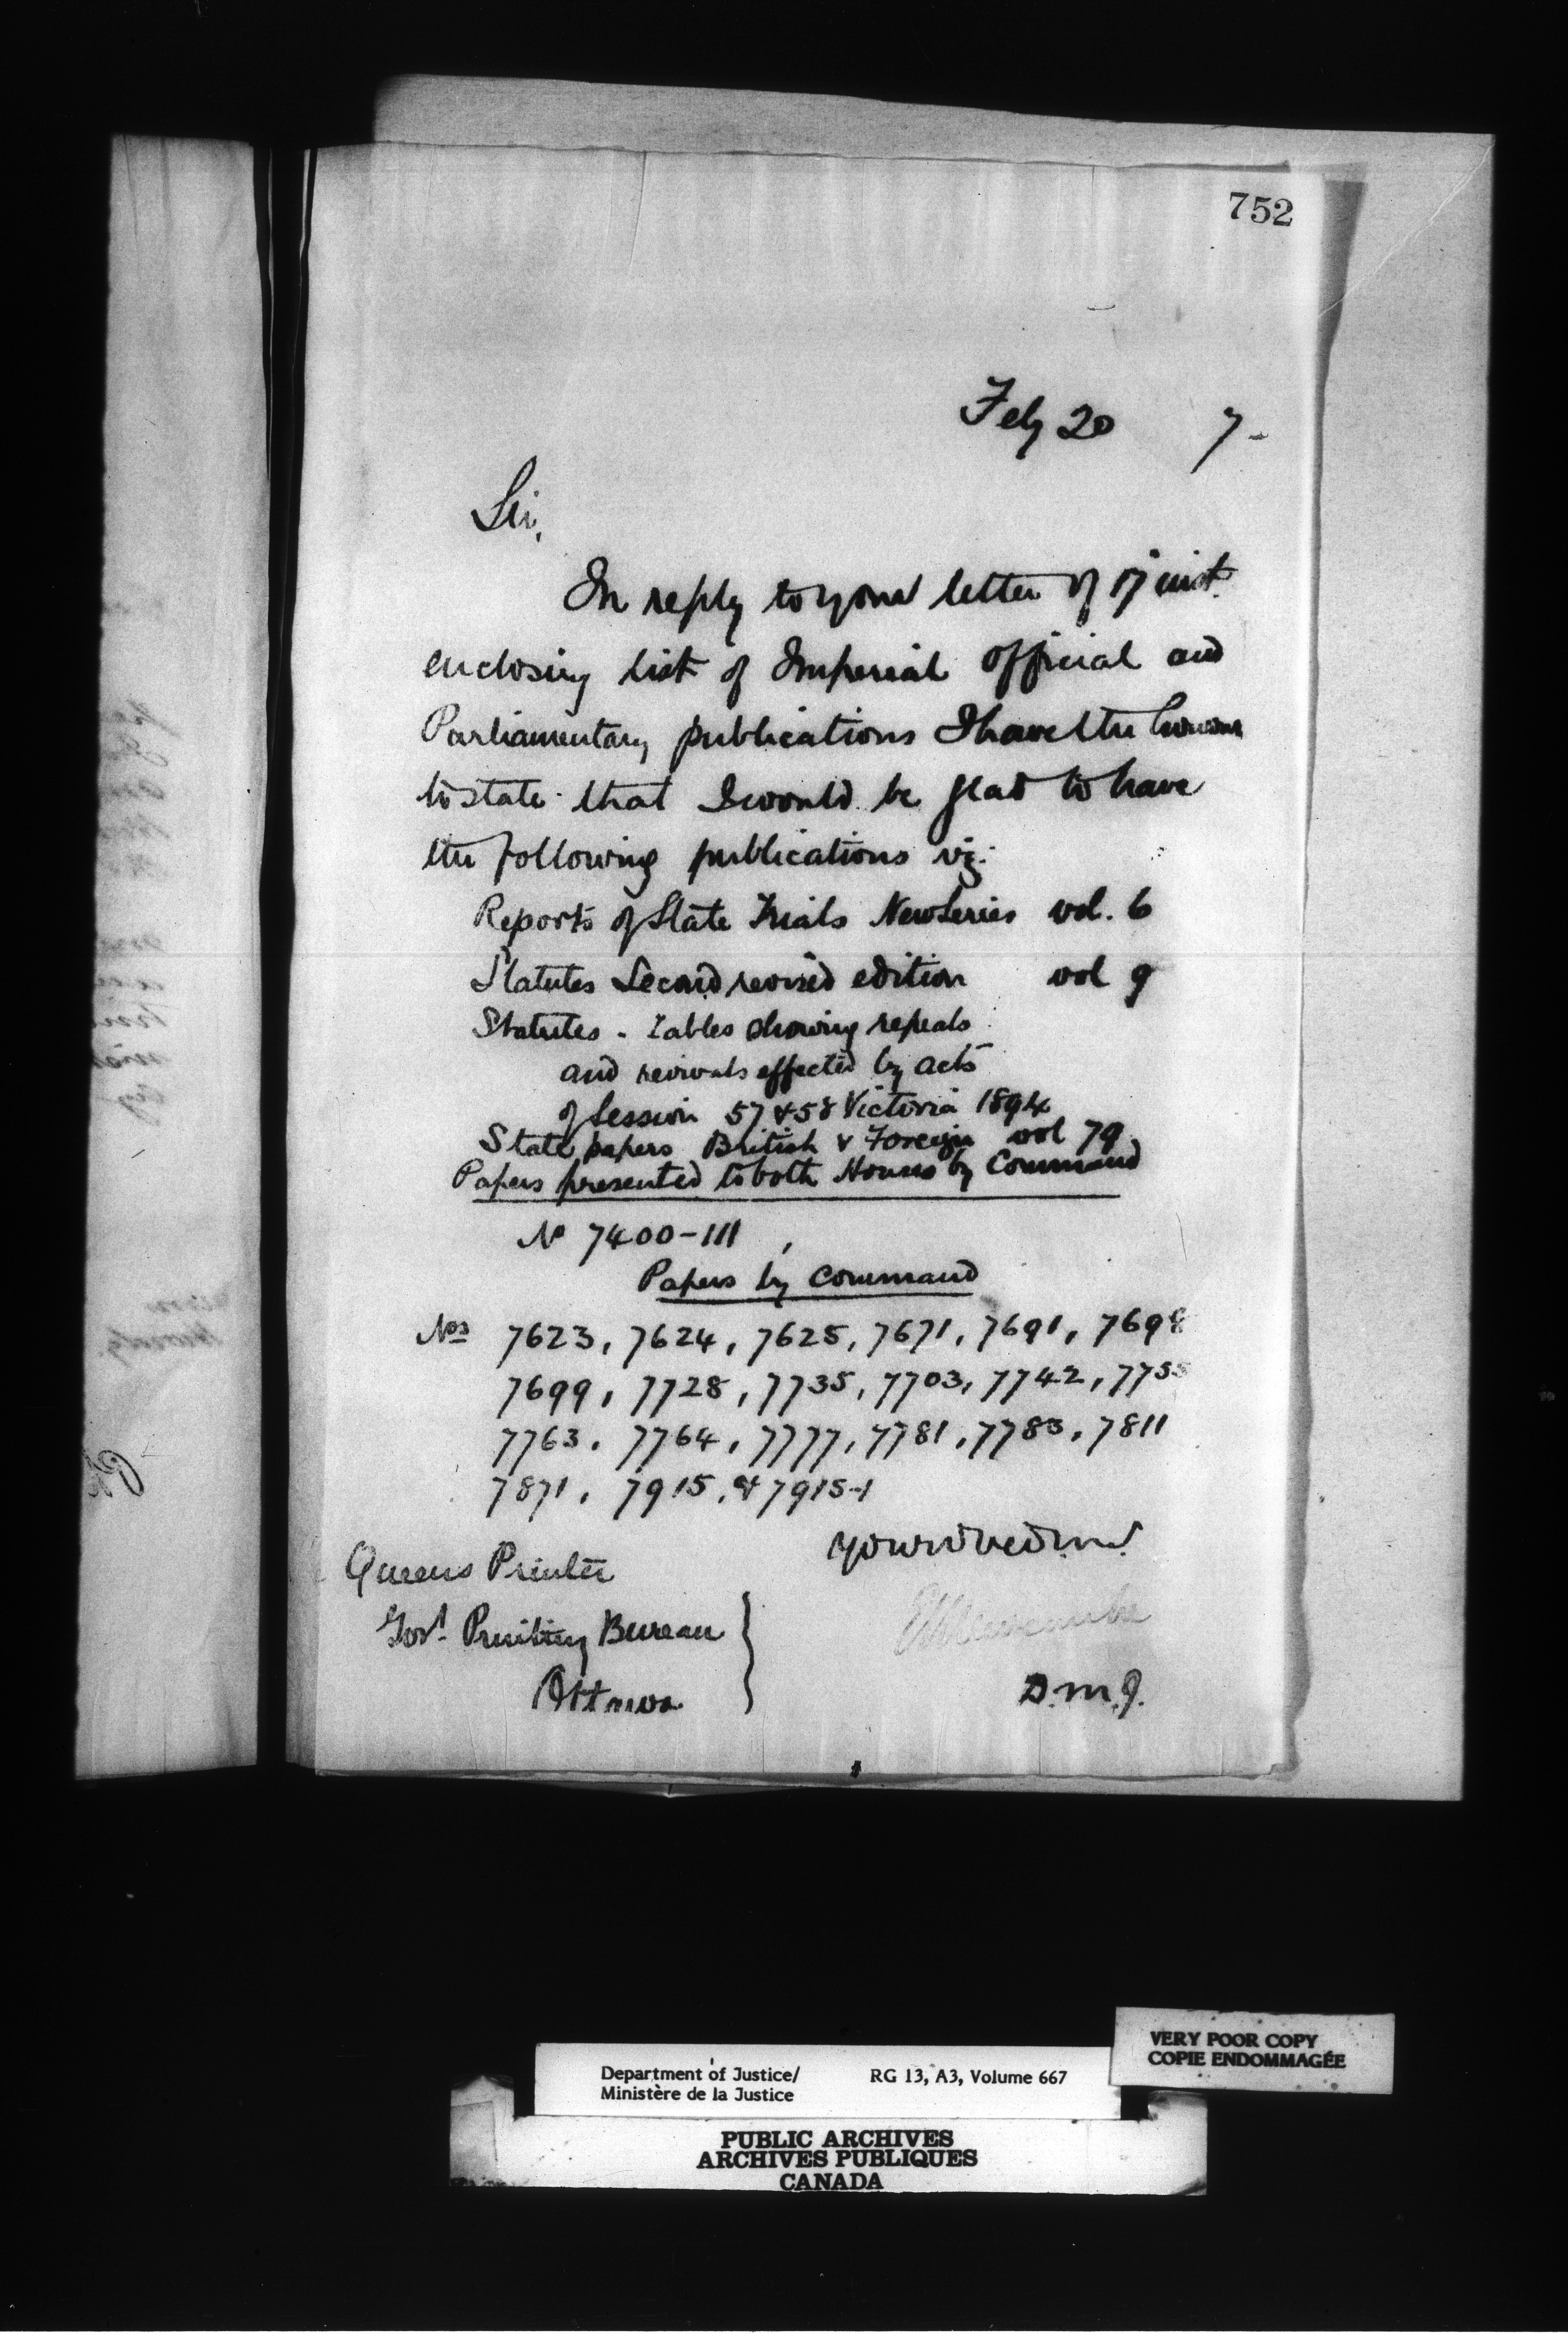 752
Feby 20 7-
Sir,
In reply to your letter of 17 inst.
enclosing list of Imperial Official and
Parliamentary publications I have the honour
to state that I would be glad to have
the following publications viz:
Reports of State Trials New Series vol. 6
Statutes Second revised edition vol 9
Statutes - Tables showing repeals
and revivals effected by acts
of Session 57 & 58 Victoria 1894
State papers British & Foreign vol 79
Papers presented to both Houses by Command
No 7400-111
Papers by Command
Nos 7623, 7624, 7625, 7671, 7691, 7698
7699, 7728, 7735, 7703, 7742, 7755
7763, 7764, 7777, 7781, 7783, 7811
7871, 7915, & 7915-1
Queens Printer
Govt. Printing Bureau
Ottawa
D.M.J.
Department of Justice/ RG 13, A3, Volume 667
Ministère de la Justice
VERY POOR COPY
COPIE ENDOMMAGÉE
PUBLIC ARCHIVES
ARCHIVES PUBLIQUES
CANADA